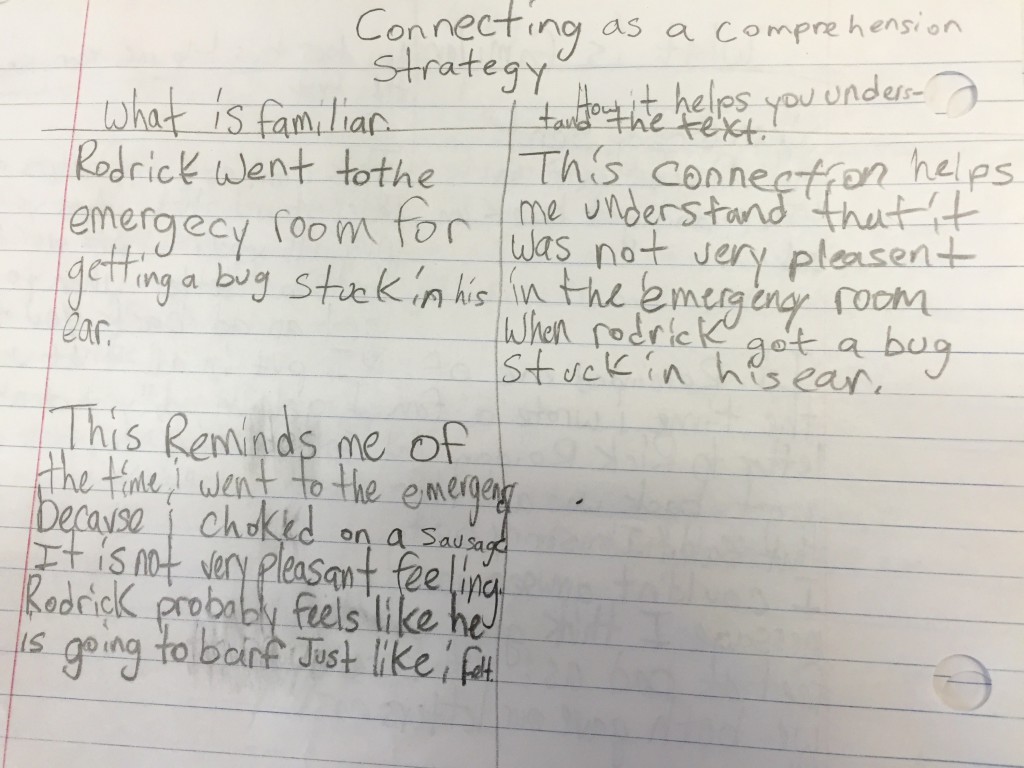 Connecting as a comprehension
Strategy
What is familiar.
Rodrick Went to the
emergecy room for
getting a bug stuck in his
ear.
This Reminds me of
the time i went to the emergency
because i choked on a sausage
It is not very pleasant feeling.
Rodrick probably feels like he
is going to barf Just like i felt.
How it helps you unders-
tand the text.
This connection helps
me understand that it
was not very pleasent
in the emergency room
When rodrick got a bug
stuck in his ear.